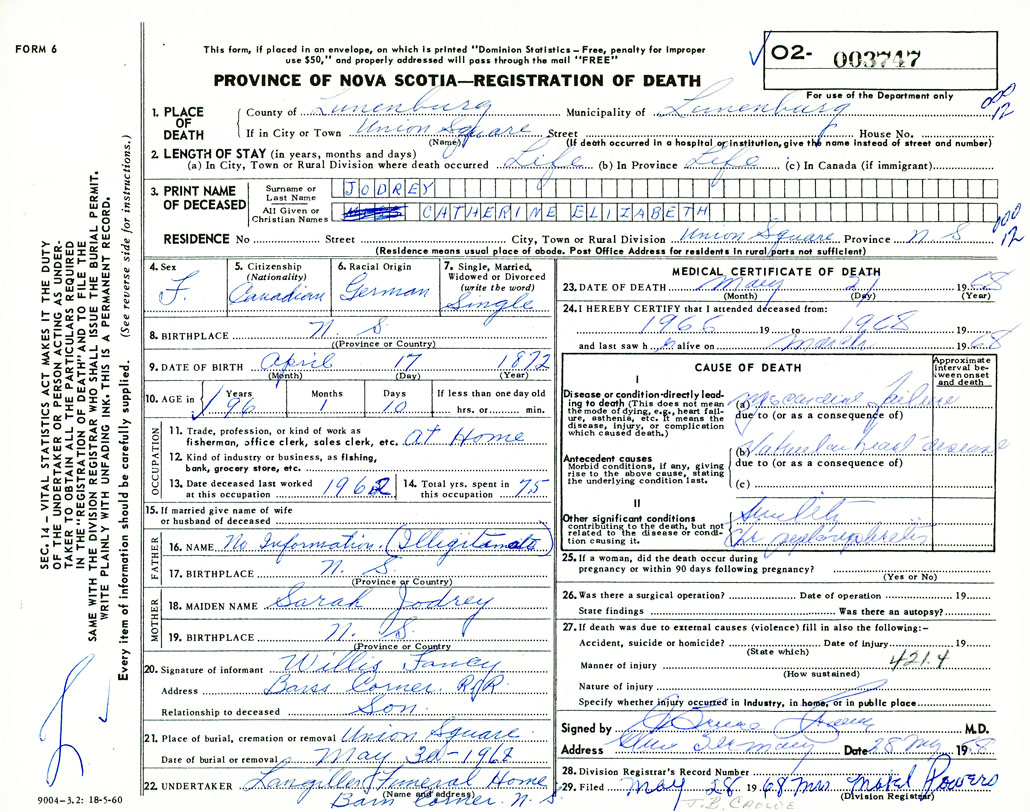 FORM 6
This form, if placed in an envelope, on which is printed "Dominion Statistics – Free, penalty for improper
use $50," and properly addressed will pass through the mail "FREE"
PROVINCE OF NOVA SCOTIA—REGISTRATION OF DEATH
O2- 003747
For use of the Department only
000
12
1. PLACE OF DEATH
County of Lunenburg Municipality of Lunenburg
If in City or Town Union Square Street House No.
(Name) (If death occurred in a hospital or institution, give the name instead of street and number)
2. LENGTH OF STAY (in years, months and days)
(a) In City, Town or Rural Division where death occurred Life (b) In Province Life (c) In Canada (if immigrant)
3. PRINT NAME OF DECEASED
Surname or Last Name JODREY
All Given or Christian Names CATHERINE ELIZABETH
000
12
RESIDENCE No Street City, Town or Rural Division Union Square Province N S
(Residence means usual place of abode. Post Office Address for residents in rural parts not sufficient)
4. Sex F.
5. Citizenship (Nationality) Canadian
6. Racial Origin German
7. Single, Married, Widowed or Divorced (write the word) Single
8. BIRTHPLACE N. S.
(Province or Country)
9. DATE OF BIRTH April 17 1872
(Month) (Day) (Year)
10. AGE in Years 96 Months 1 Days 10 If less than one day old hrs. or min.
OCCUPATION
11. Trade, profession, or kind of work as
fisherman, office clerk, sales clerk, etc. At Home
12. Kind of industry or business, as fishing,
bank, grocery store, etc.
13. Date deceased last worked at this occupation 1962 14. Total yrs. spent in this occupation 75
15. If married give name of wife
or husband of deceased
FATHER
16. NAME No Information. (Illegitamate)
17. BIRTHPLACE N. S.
(Province or Country)
MOTHER
18. MAIDEN NAME Sarah Jodrey
19. BIRTHPLACE N. S.
(Province or Country)
20. Signature of informant Willis Fancy
Address Barss Corner. R.R.
Relationship to deceased Son.
21. Place of burial, cremation or removal Union Square.
Date of burial or removal May 30 - 1968
22. UNDERTAKER Langilles Funeral Home
(Name and address)
Barss Corner. N. S.
MEDICAL CERTIFICATE OF DEATH
23. DATE OF DEATH May 27 1968
(Month) (Day) (Year)
24. I HEREBY CERTIFY that I attended deceased from:
1966 19 to 1968 19
and last saw h er alive on March 1968
CAUSE OF DEATH
Approximate interval between onset and death
I
Disease or condition directly leading to death (This does not mean the mode of dying, e.g., heart failure, asthenia, etc. It means the disease, injury, or complication which caused death.)
(a) Myocardial failure
due to (or as a consequence of)
Antecedent causes
Morbid conditions, if any, giving rise to the above cause, stating the underlying condition last.
(b) Valvular heart disease
due to (or as a consequence of)
(c)
II
Other significant conditions
contributing to the death, but not related to the disease or condition causing it.
Senility
Chr nephritis
25. If a woman, did the death occur during
pregnancy or within 90 days following pregnancy?
(Yes or No)
26. Was there a surgical operation? Date of operation 19
State findings Was there an autopsy?
27. If death was due to external causes (violence) fill in also the following:–
Accident, suicide or homicide? Date of injury 19
(State which)
421.4
Manner of injury
(How sustained)
Nature of injury
Specify whether injury occurred in industry, in home, or in public place
Signed by M.D.
Address New Germany Date 28 May 1968
28. Division Registrar's Record Number
29. Filed May 28 1968 Mrs Mabel Powers
(Division Registrar)
J. B. CROWE
SEC. 14 – VITAL STATISTICS ACT MAKES IT THE DUTY
OF THE UNDERTAKER OR PERSON ACTING AS UNDER-
TAKER TO OBTAIN ALL THE PARTICULARS REQUIRED
IN THE "REGISTRATION OF DEATH" AND TO FILE THE
SAME WITH THE DIVISION REGISTRAR WHO SHALL ISSUE THE BURIAL PERMIT.
WRITE PLAINLY WITH UNFADING INK. THIS IS A PERMANENT RECORD.
Every item of information should be carefully supplied. (See reverse side for instructions.)
9004–3.2: 18-5-60